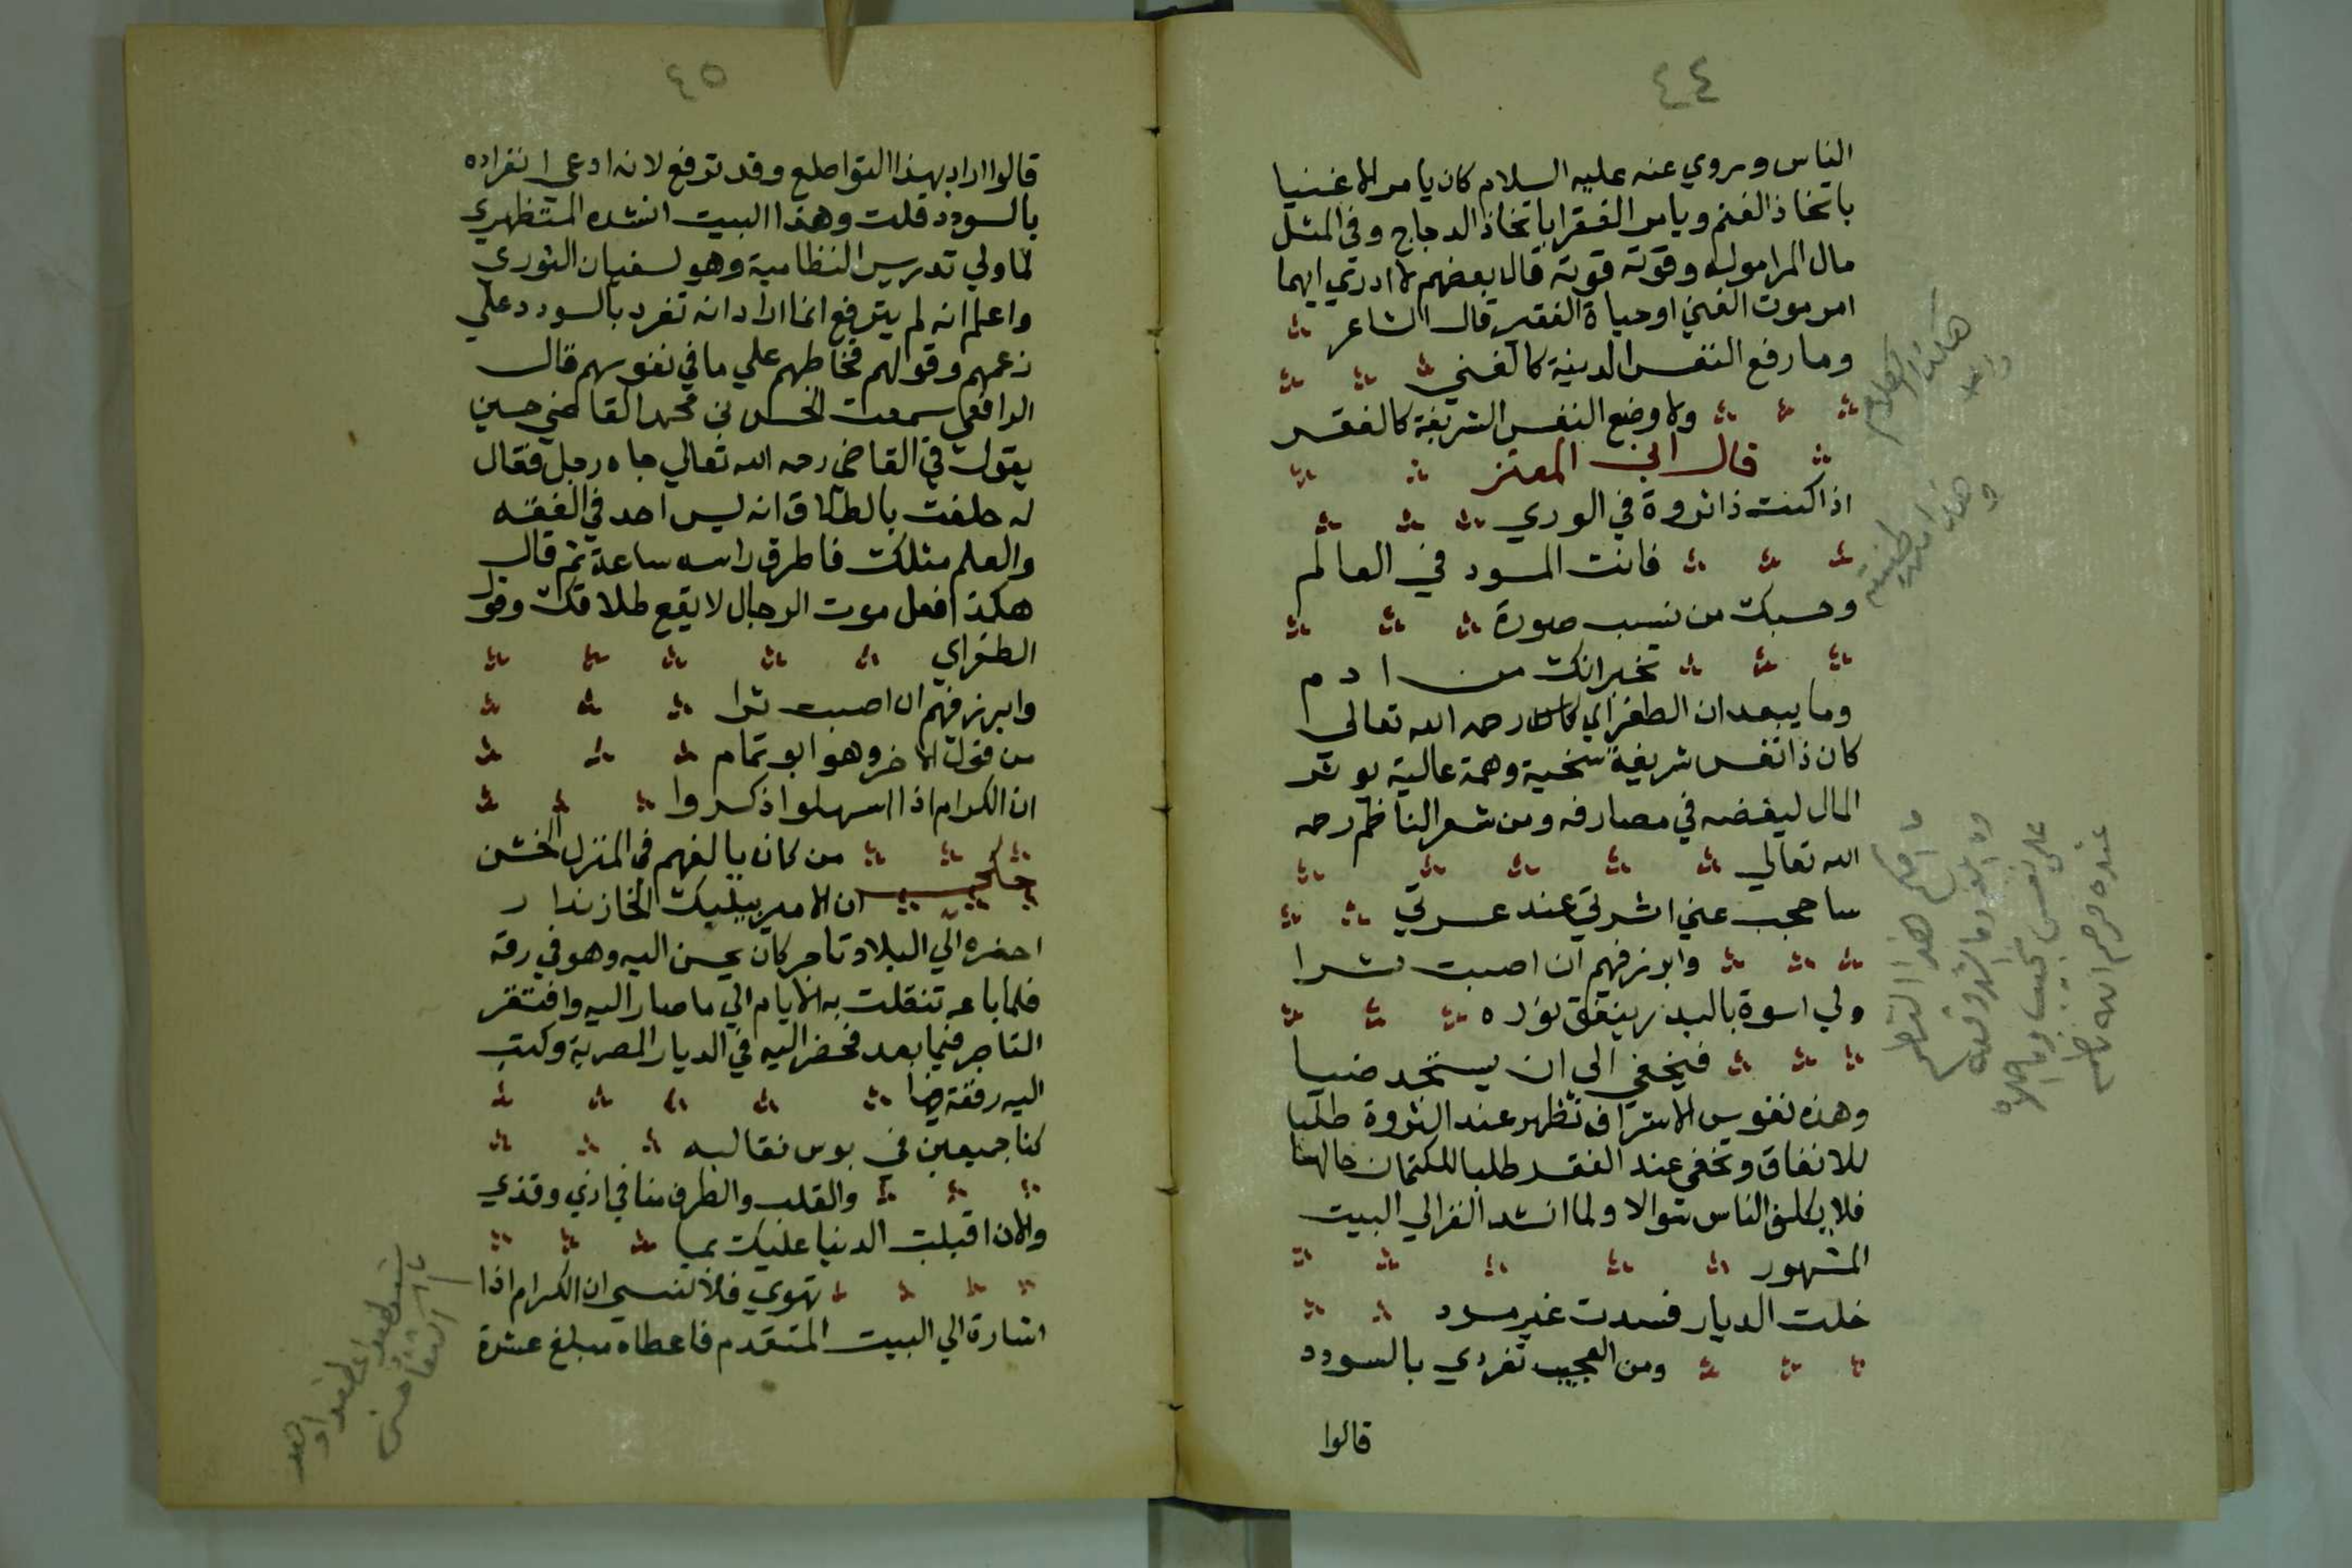 ٤٤
الناس وروي عنه عليه السلام كان يامر الاغنيا
باتخاذ الغنم ويامر الفقرا باتخاذ الدجاج وفي المثل
مال المرا موله وقوته قوته قال بعضهم لا ادري ايهما
امر موت الغني او حياة الفقير قال الشاعر
وما رفع النفس الدنية كالغني
ولا وضع النفس الشريفة كالفقر
قال ابن المعتز
اذا كنت ذا ثروة في الوري
فانت المسود في العالم
وحسبك من نسب صورة
تخبر انك من ادم
وما يبعد ان الطغراي كان رحمه الله تعالي
كان ذا نفس شريفة سخية وهمة عالية يوثر
المال ليفضه في مصارفه ومن شعر الناظم رحمه
الله تعالي
ساحجب عني اسرتي عند عسرتي
وابرز فيهم ان اصبت ثرا
ولي اسوة بالبدر ينفق نوره
فيخفي الي ان يستجد ضيا
وهذه نفوس الاشراف تظهر عند الثروة طلبا
للانفاق وتخفي عند الفقر طلبا للكتمان حالها
فلا يكلف الناس سوالا ولما انشد الغزالي البيت
المشهور
خلت الديار فسدت غير مسود
ومن العجيب تفردي بالسودد
قالوا
هكذا الكلام
ما افهم هذا الناظم
٤٥
قالوا اراد بهذا التواضع وقد ترفع لانه ادعي انفراده
بالسودد قلت وهذا البيت انشده المستظهري
لما ولي تدريس النظامية وهو لسفيان الثوري
واعلم انه لم يترفع انما اراد انه تفرد بالسودد علي
زعمهم وقولهم فخاطبهم علي ما في نفوسهم قال
الرافعي سمعت الحسن بن محمد القاضي حسين
يقول في القاضي رحمه الله تعالي جاه رجل فقال
له حلفت بالطلاق انه ليس احد في الفقه
والعلم مثلك فاطرق راسه ساعة ثم قال
هكذا فعل موت الرجال لا يقع طلاقك وقول
الطغراي
وابرز فيهم ان اصبت ثرا
من قول الاخر وهو ابو تمام
ان الكرام اذا اسهلوا ذكروا
من كان يالفهم في المنزل الخشن
حكي ان الامير بيليك الخازندار
احضره الي البلاد تاجر كان يحسن اليه وهو في رقه
فلما باعه تنقلت به الايام الي ما صار اليه وافتقر
التاجر فيما بعد فحضر اليه في الديار المصرية وكتب
اليه رقعة فيها
كنا جميعين في بوس نقالبه
والقلب والطرف منا في اذي وقذي
والان اقبلت الدنيا عليك بما
تهوي فلا تنسي ان الكرام اذا
اشارة الي البيت المتقدم فاعطاه مبلغ عشرة